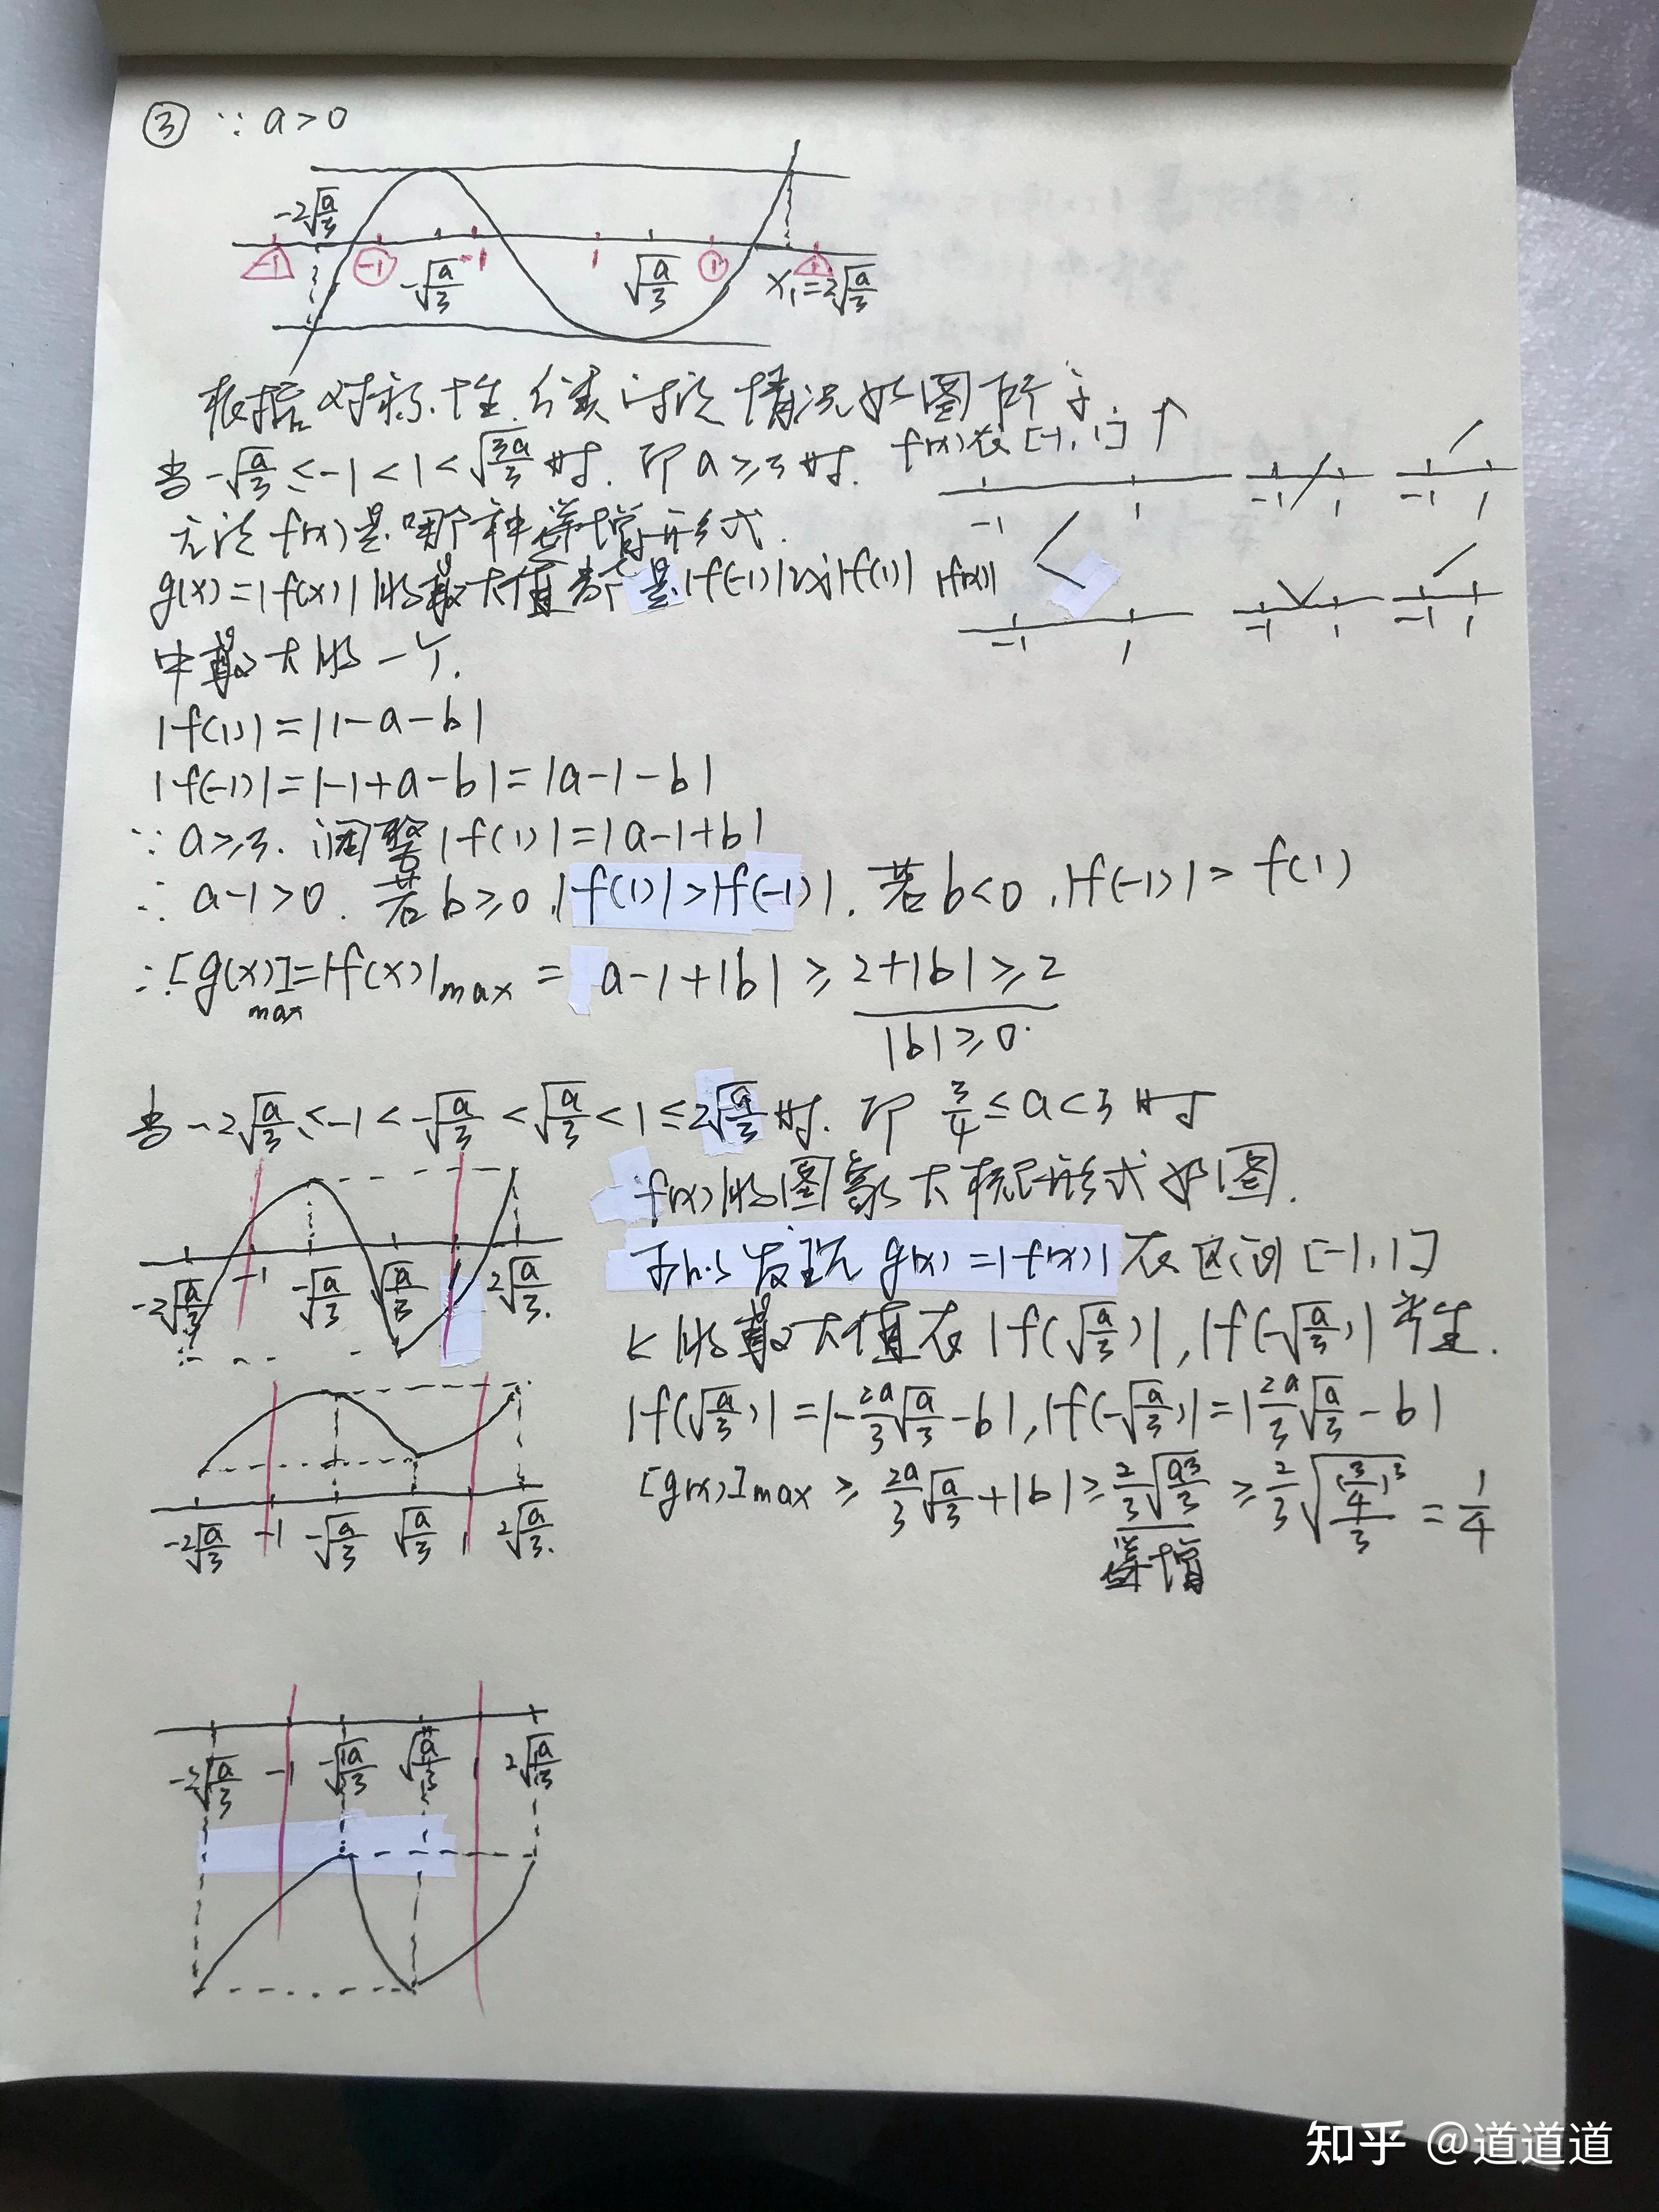 ③ ∵ a>0
-2√(a/3)
-1 -1 -√(a/3) -1 1 √(a/3) 1 x₁=2√(a/3) 1
根据对称性,分类讨论情况如图所示
当-√(a/3)≤-1<1<√(3a/3)时.即a≥3时. f(x)在[-1,1]↑
-1 1 -1 1 -1 1
无论f(x)是哪个种单增形式.
g(x)=|f(x)|的最大值都是|f(-1)|及|f(1)| |f(x)|
-1 1 -1 1 -1 1
中最大的一个.
|f(1)|=|1-a-b|
|f(-1)|=|-1+a-b|=|a-1-b|
∵a≥3.调整|f(1)|=|a-1+b|
∴a-1>0.若b≥0,|f(1)|>|f(-1)|.若b<0,|f(-1)|>f(1)
∴[g(x)]max=|f(x)|max=a-1+|b|≥2+|b|≥2
|b|≥0.
当-2√(a/3)≤-1<-√(a/3)<√(a/3)<1≤2√(a/3)时.即3/4≤a<3时
f(x)的图象大概形式如图.
发现g(x)=|f(x)|在区间[-1,1]
-2√(a/3) -1 -√(a/3) √(a/3) 1 2√(a/3).
上的最大值在|f(√(a/3))|,|f(-√(a/3))|产生.
|f(√(a/3))|=|-2a/3√(a/3)-b|,|f(-√(a/3))|=|2a/3√(a/3)-b|
[g(x)]max≥2a/3√(a/3)+|b|≥2/3√(a³/3)≥2/3√((3/4)³/3)=1/4
单增
-2√(a/3) -1 -√(a/3) √(a/3) 1 2√(a/3).
-2√(a/3) -1 -√(a/3) √(a/3) 1 2√(a/3)
知乎 @道道道